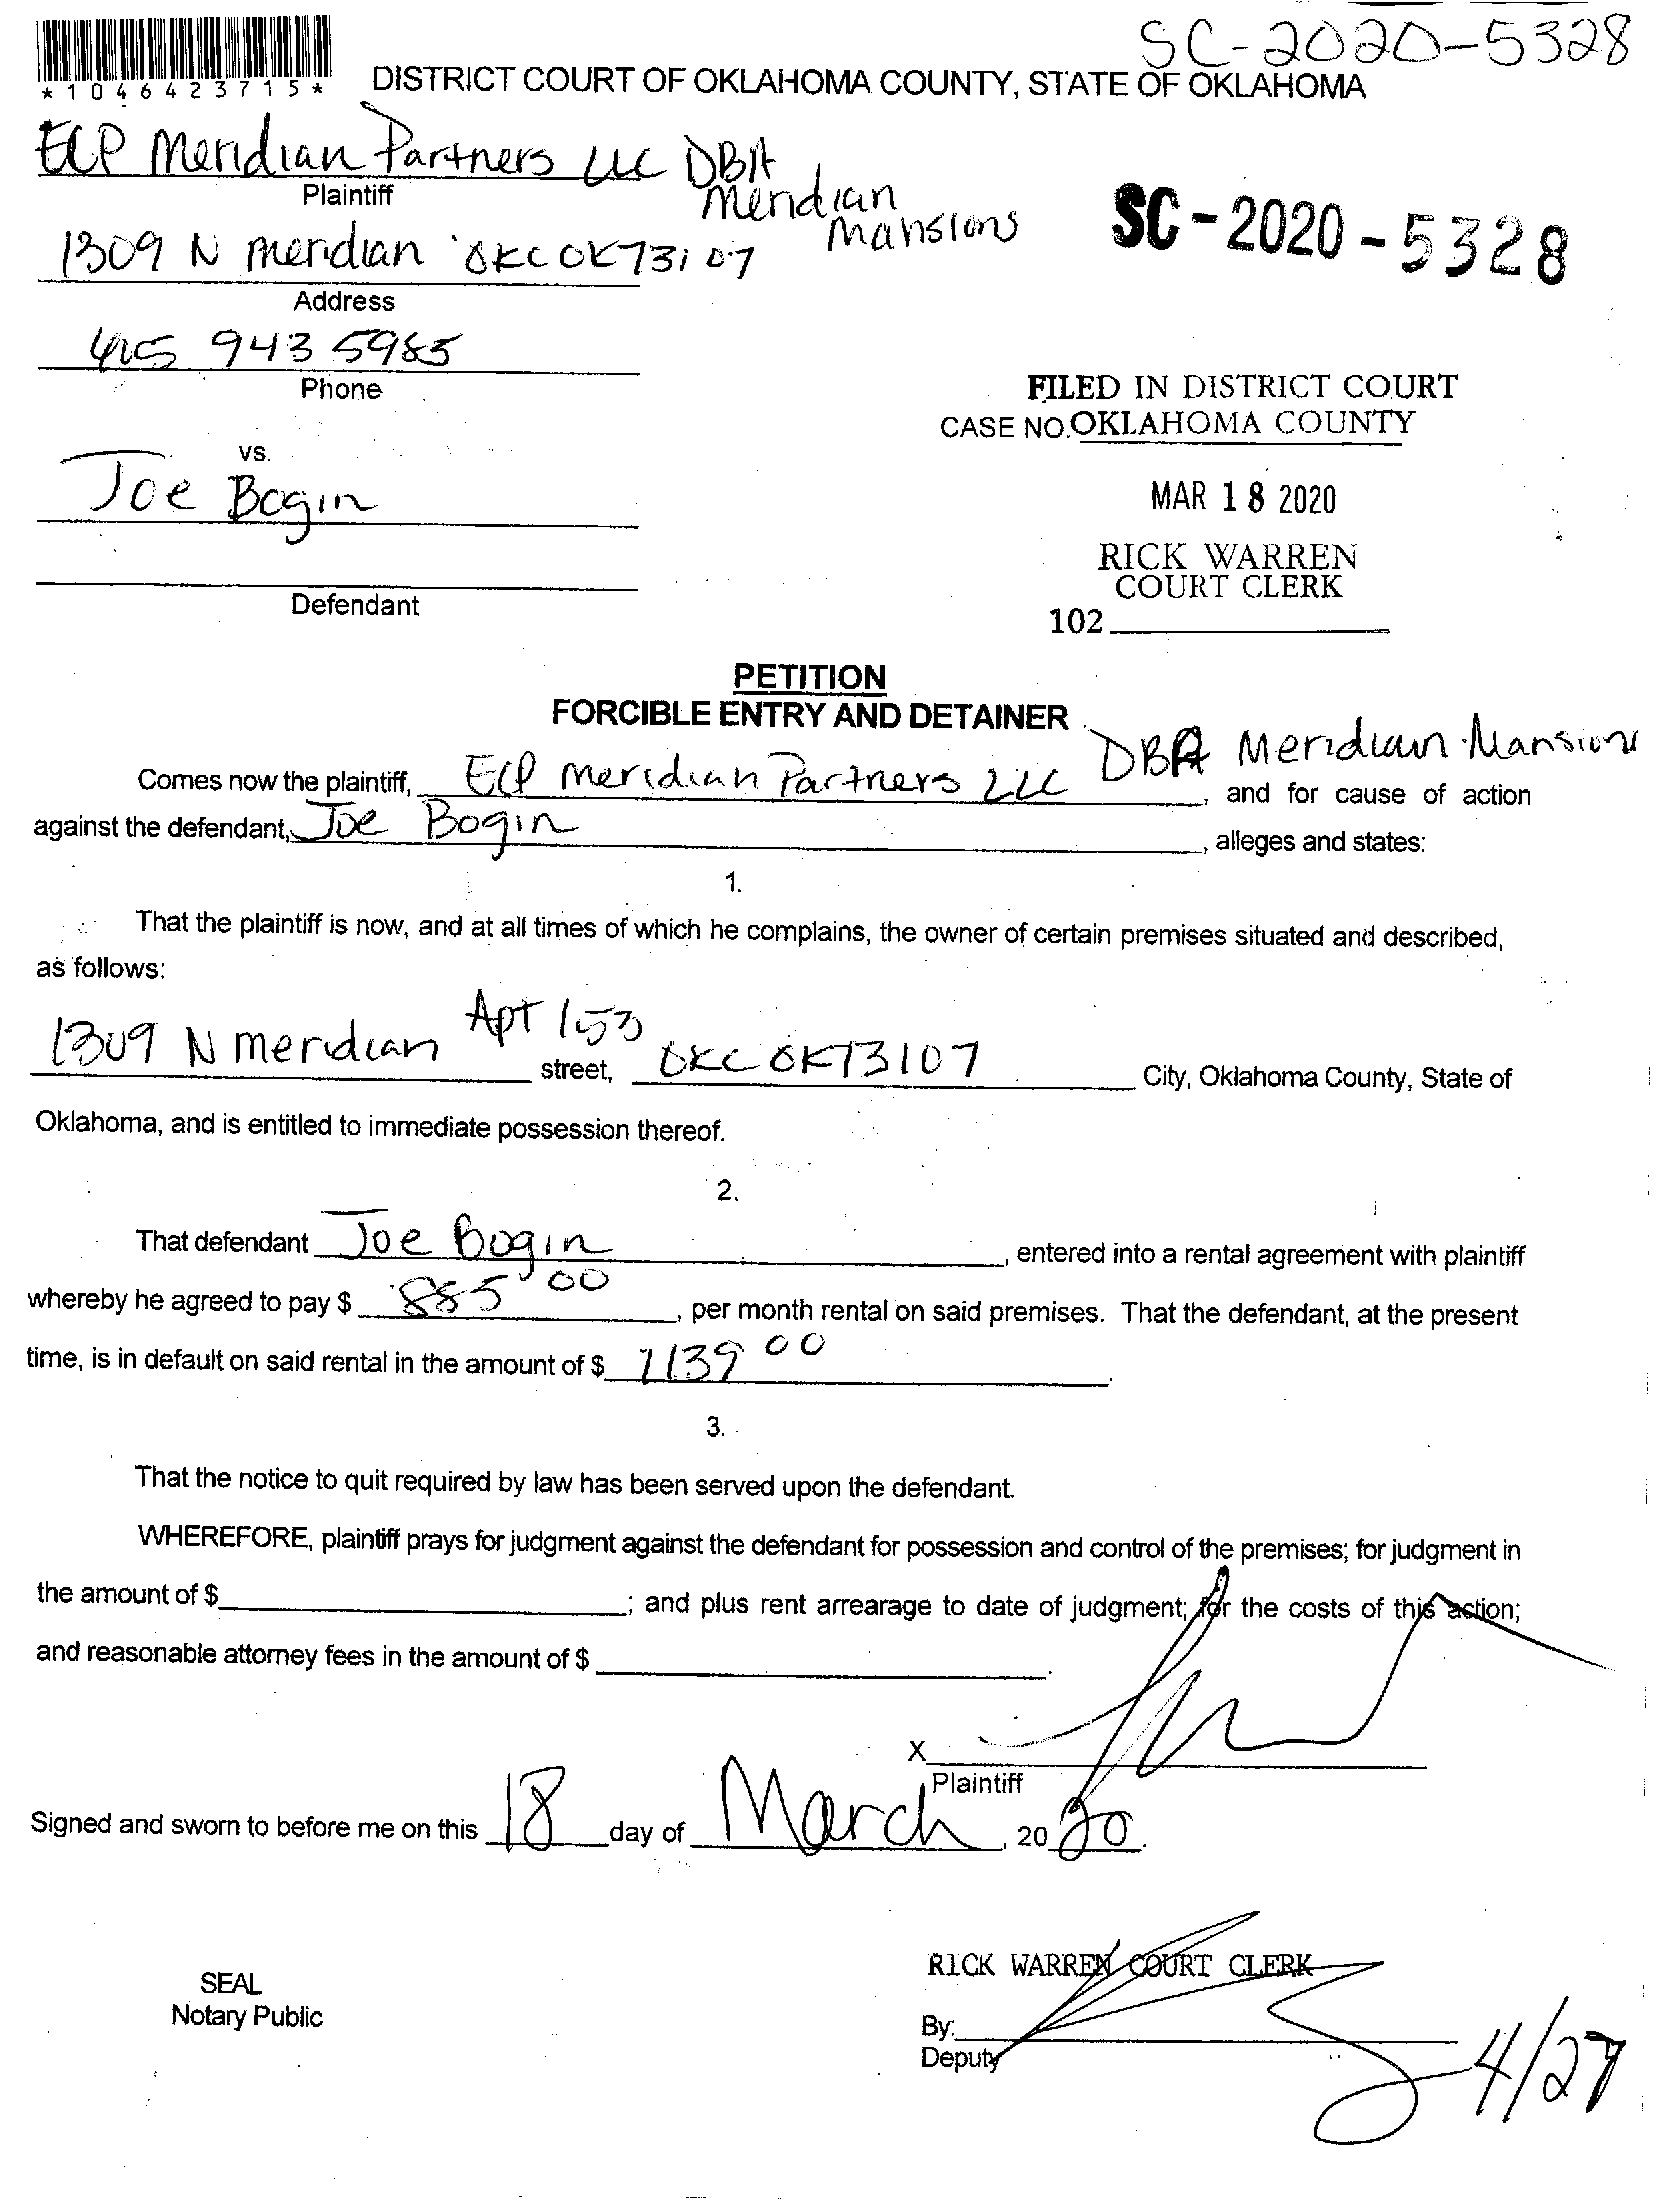 SC-2020-5328
*1046423715*
DISTRICT COURT OF OKLAHOMA COUNTY, STATE OF OKLAHOMA
ECP Meridian Partners LLC DBA
Meridian
Mansions
Plaintiff
SC-2020-5328
1309 N Meridian OKC OK 73107
Address
405 943 5985
Phone
FILED IN DISTRICT COURT
CASE NO. OKLAHOMA COUNTY
vs.
Joe Bogin
MAR 18 2020
RICK WARREN
COURT CLERK
Defendant
102
PETITION
FORCIBLE ENTRY AND DETAINER
DBA Meridian Mansions
Comes now the plaintiff, ECP Meridian Partners LLC, and for cause of action
against the defendant, Joe Bogin, alleges and states:
1.
That the plaintiff is now, and at all times of which he complains, the owner of certain premises situated and described,
as follows:
1309 N Meridian Apt 153 street, OKC OK 73107 City, Oklahoma County, State of
Oklahoma, and is entitled to immediate possession thereof.
2.
That defendant Joe Bogin, entered into a rental agreement with plaintiff
whereby he agreed to pay $ 885 00, per month rental on said premises. That the defendant, at the present
time, is in default on said rental in the amount of $ 1139 00.
3.
That the notice to quit required by law has been served upon the defendant.
WHEREFORE, plaintiff prays for judgment against the defendant for possession and control of the premises; for judgment in
the amount of $; and plus rent arrearage to date of judgment; for the costs of this action;
and reasonable attorney fees in the amount of $.
X
Plaintiff
Signed and sworn to before me on this 18 day of March, 2020.
RICK WARREN COURT CLERK
SEAL
Notary Public
By:
Deputy
4/27